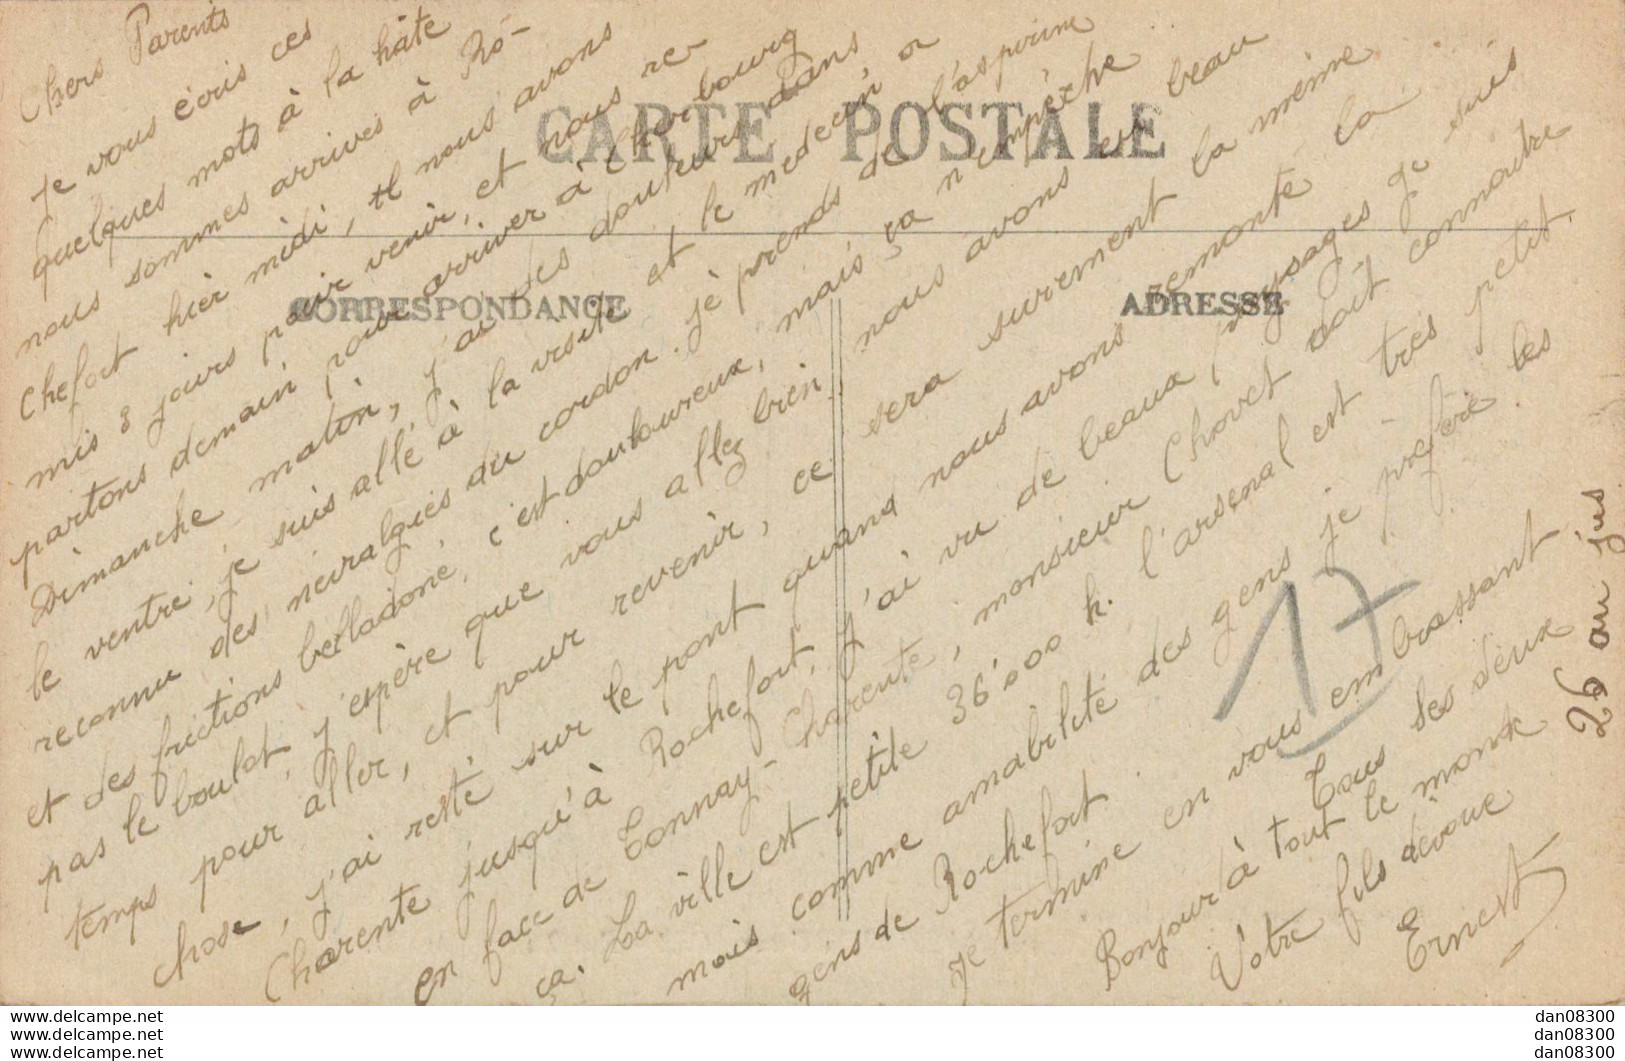 Chers Parents
je vous écris ces
quelques mots à la hâte
nous sommes arrivés à Ro-
chefort hier midi, et nous avons
mis 3 jours pour venir, et nous re-
partons demain pour arriver à Cherbourg
Dimanche matin, j'ai des douleurs dans
le ventre, je suis allé à la visite et le médecin a
reconnu des neivralgies du cordon. je prends de l'aspirine
et des frictions belladoné, c'est douloureux, mais ça n'empêche
pas le boulot, j'espère que vous allez bien, nous avons eu beau
temps pour aller, et pour revenir, ce sera surement la même
chose, j'ai resté sur le pont quand nous avons remonte la
Charente jusqu'à Rochefort, j'ai vu de beaux paysages je suis
en face de Tonnay-Charente, monsieur Chovet doit connaitre
ça. La ville est petite 36'000 h. l'arsenal est très petit.
mais comme amabilité des gens je préfère les
gens de Rochefort.
je termine en vous embrassant
Tous les deux
Bonjour à tout le monde
Votre fils dévoué
Ernest
CARTE POSTALE
CORRESPONDANCE
ADRESSE
17
26 au jus
www.delcampe.net
www.delcampe.net
www.delcampe.net
dan08300
dan08300
dan08300